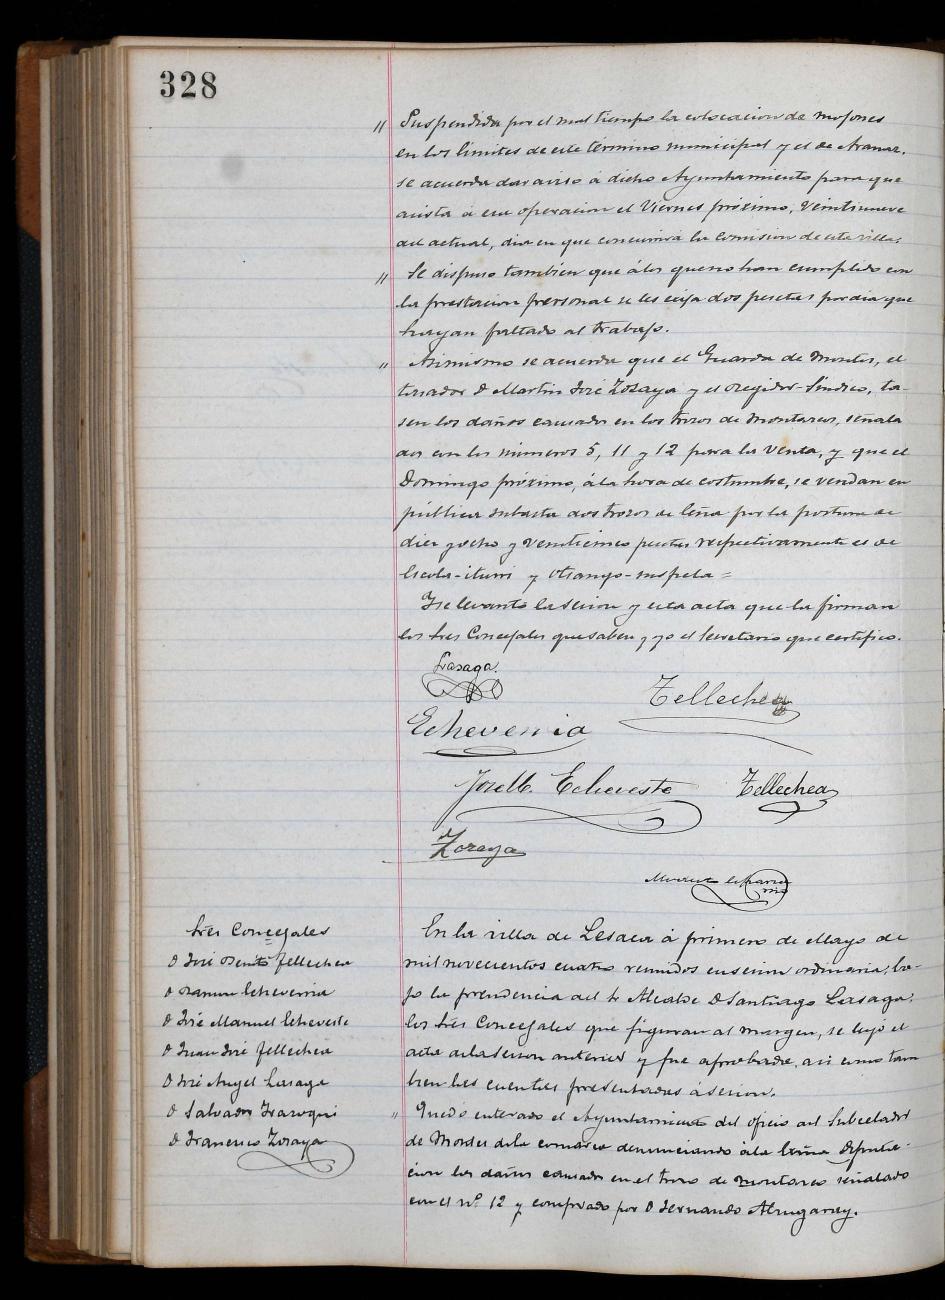 328
" Suspendida por el mal tiempo la colocacion de mojones
en los limites de este término municipal y el de Aranaz,
se acuerda dar aviso á dicho Ayuntamiento para que
asista á esa operacion el Viernes próximo, veintinueve
del actual, dia en que concurrirá la comision de esta villa;
" Se dispuso tambien que á los que no han cumplido con
la prestacion personal se les exija dos pesetas por dia que
hayan faltado al trabajo.
" Asimismo se acuerda que el Guarda de Montes, el
tasador D Martin José Zozaya y el Regidor-Síndico, ta-
sen los daños causados en los trozos de montazco, señala
dos con los números 5, 11 y 12 para la venta, y que el
Domingo próximo, á la hora de costumbre, se vendan en
pública subasta dos trozos de leña por la postura de
diez y ocho y veinticinco pesetas respectivamente es de
Escola-iturri y Otsango-
Y se levantó la sesion y esta acta que la firman
los Sres Concejales que saben y yo el Secretario que certifico.
Lasaga.
Tellechea
Echeverria
José M. Echeveste
Tellechea
Zozaya
Sres Concejales
D José Benito Tellechea
D Ramon Echeverria
D José Manuel Echeveste
D Juan José Tellechea
D José Angel Lasaga
D Salvador Irazoqui
D Francisco Zozaya
En la villa de Lesaca á primero de Mayo de
mil novecientos cuatro reunidos en sesion ordinaria, ba-
jo la presidencia del Sr Alcalde D Santiago Lasaga,
los Sres Concejales que figuran al margen, se leyó el
acta de la sesion anterior y fue aprobada, asi como tam
bien las cuentas presentadas á sesion.
" Quedó enterado el Ayuntamiento del oficio del Subcelador
de Montes de la comarca denunciando á la Excma Diputa-
cion los daños causados en el trozo de montazco señalado
con el nº 12 y comprado por D Fernando Alzugaray.